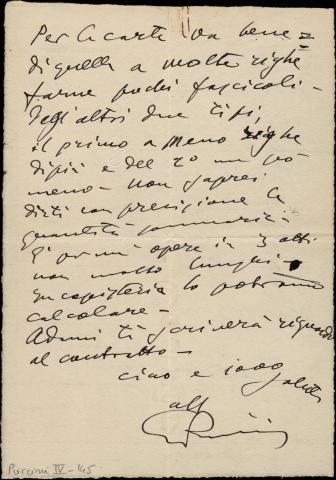 Per le carte va bene =
di quelle a molte righe
farne pochi fascicoli -
Degli altri due tipi,
il primo a meno righe
di più e del 2º un pò
meno - non saprei
dirti con precisione la
quantità sommaria -
È un'opera in 3 atti
non molto lunghi -
In copisteria lo potranno
calcolare -
Adami ti scriverà riguardo
al contratto -
ciao e 1000 saluti
aff
GPuccini
Puccini IV-145